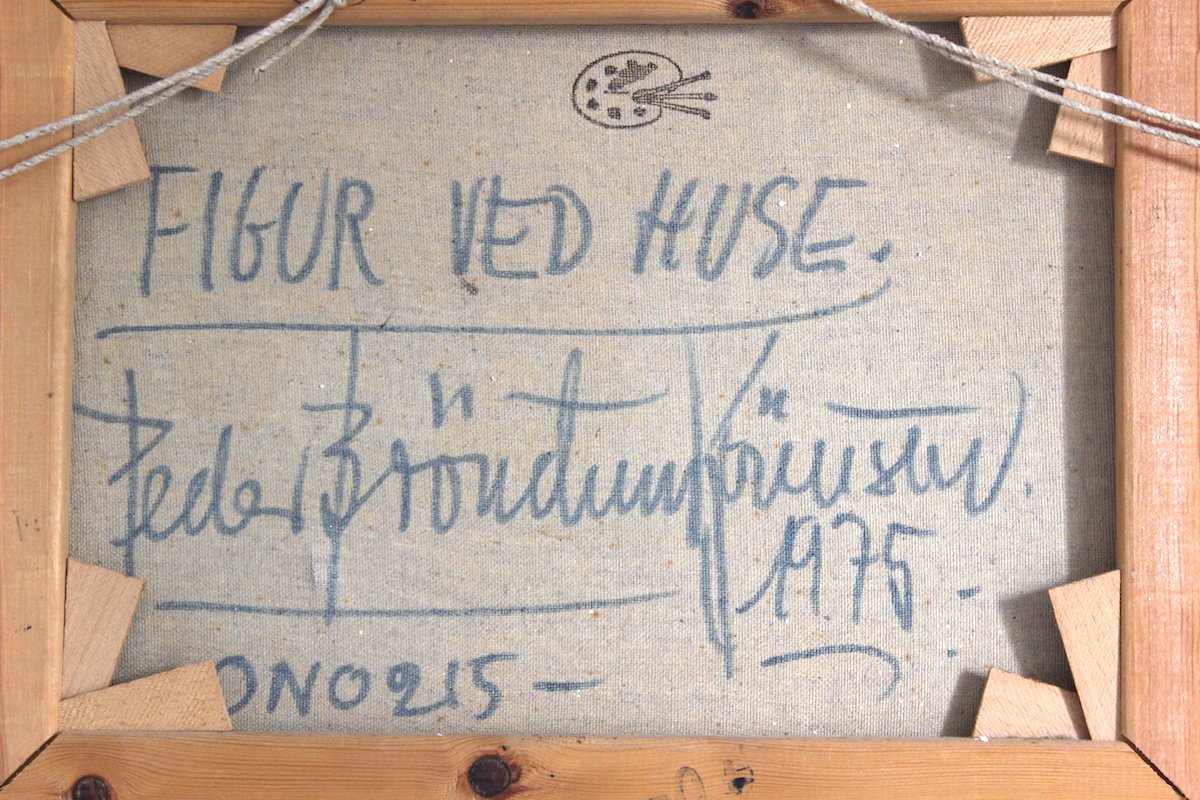 FIGUR VED HUSE.
Peder Bröndum Sörensen.
1975 -
ONO215 -